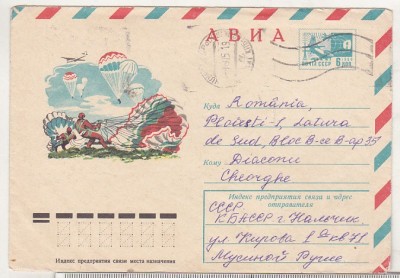 АВИА
ПОЧТА СССР
6 КОП
Куда România,
Ploiesti-1, Latura
de Sud, Bloc B-ce B-ap 35
Кому Diaconu
Gheorghe
Индекс предприятия связи и адрес
отправителя
СССР
КБАССР г. Нальчик
ул Кирова 1 кв 71
Мусиной Русие
Индекс предприятия связи места назначения